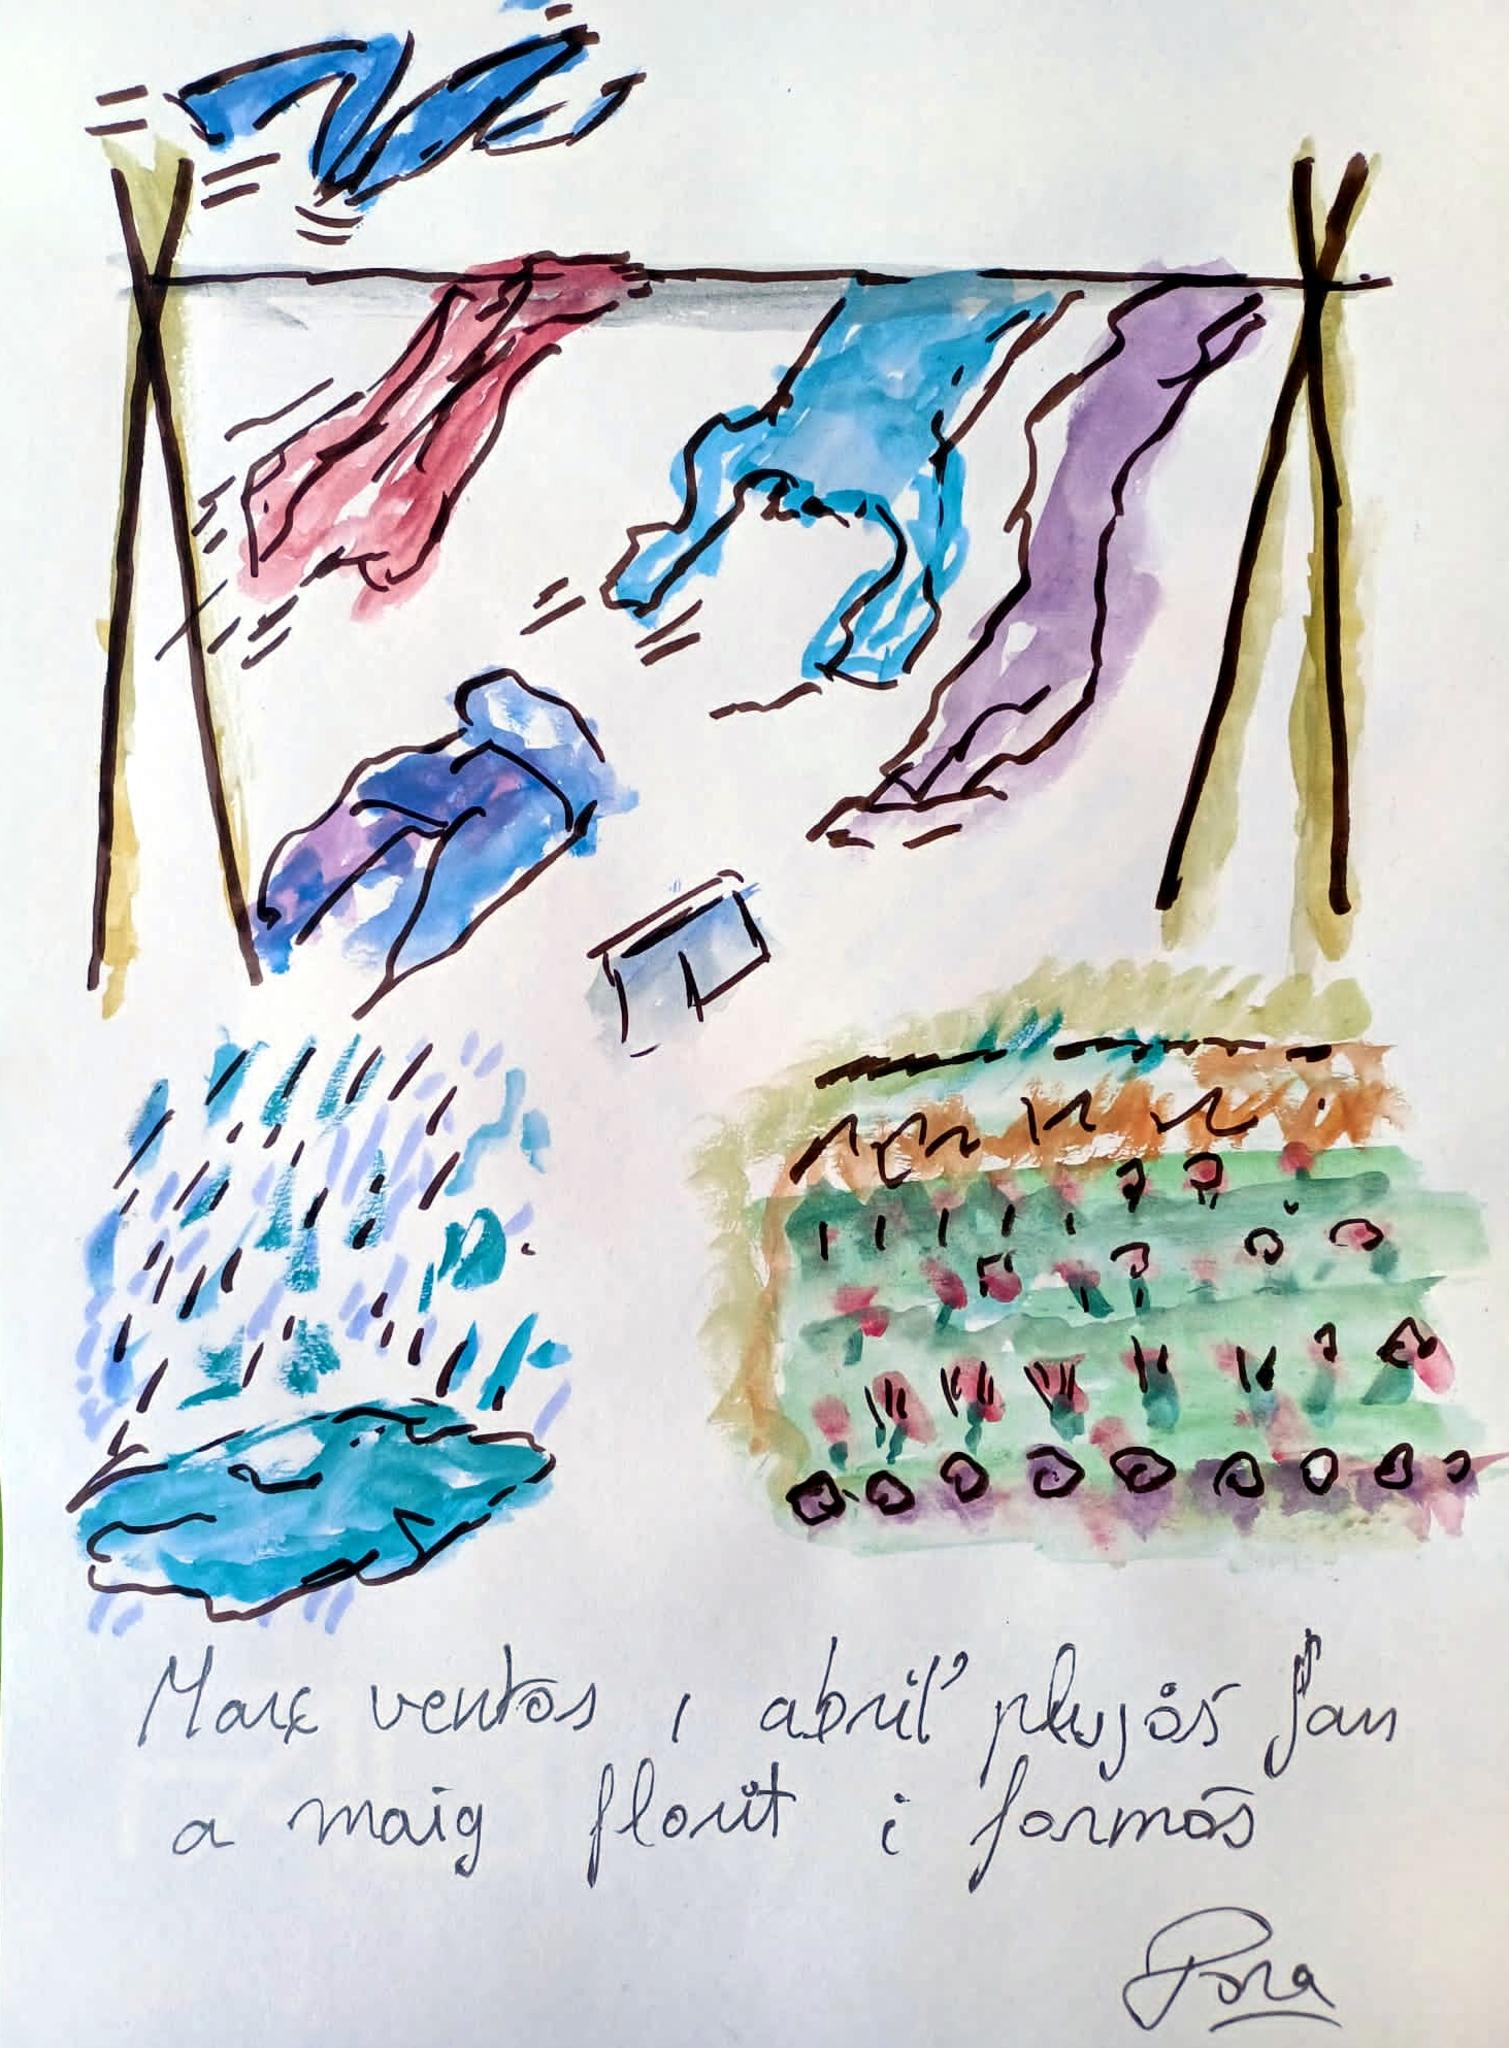 Març ventos i abril plujós fan
a maig florit i formós